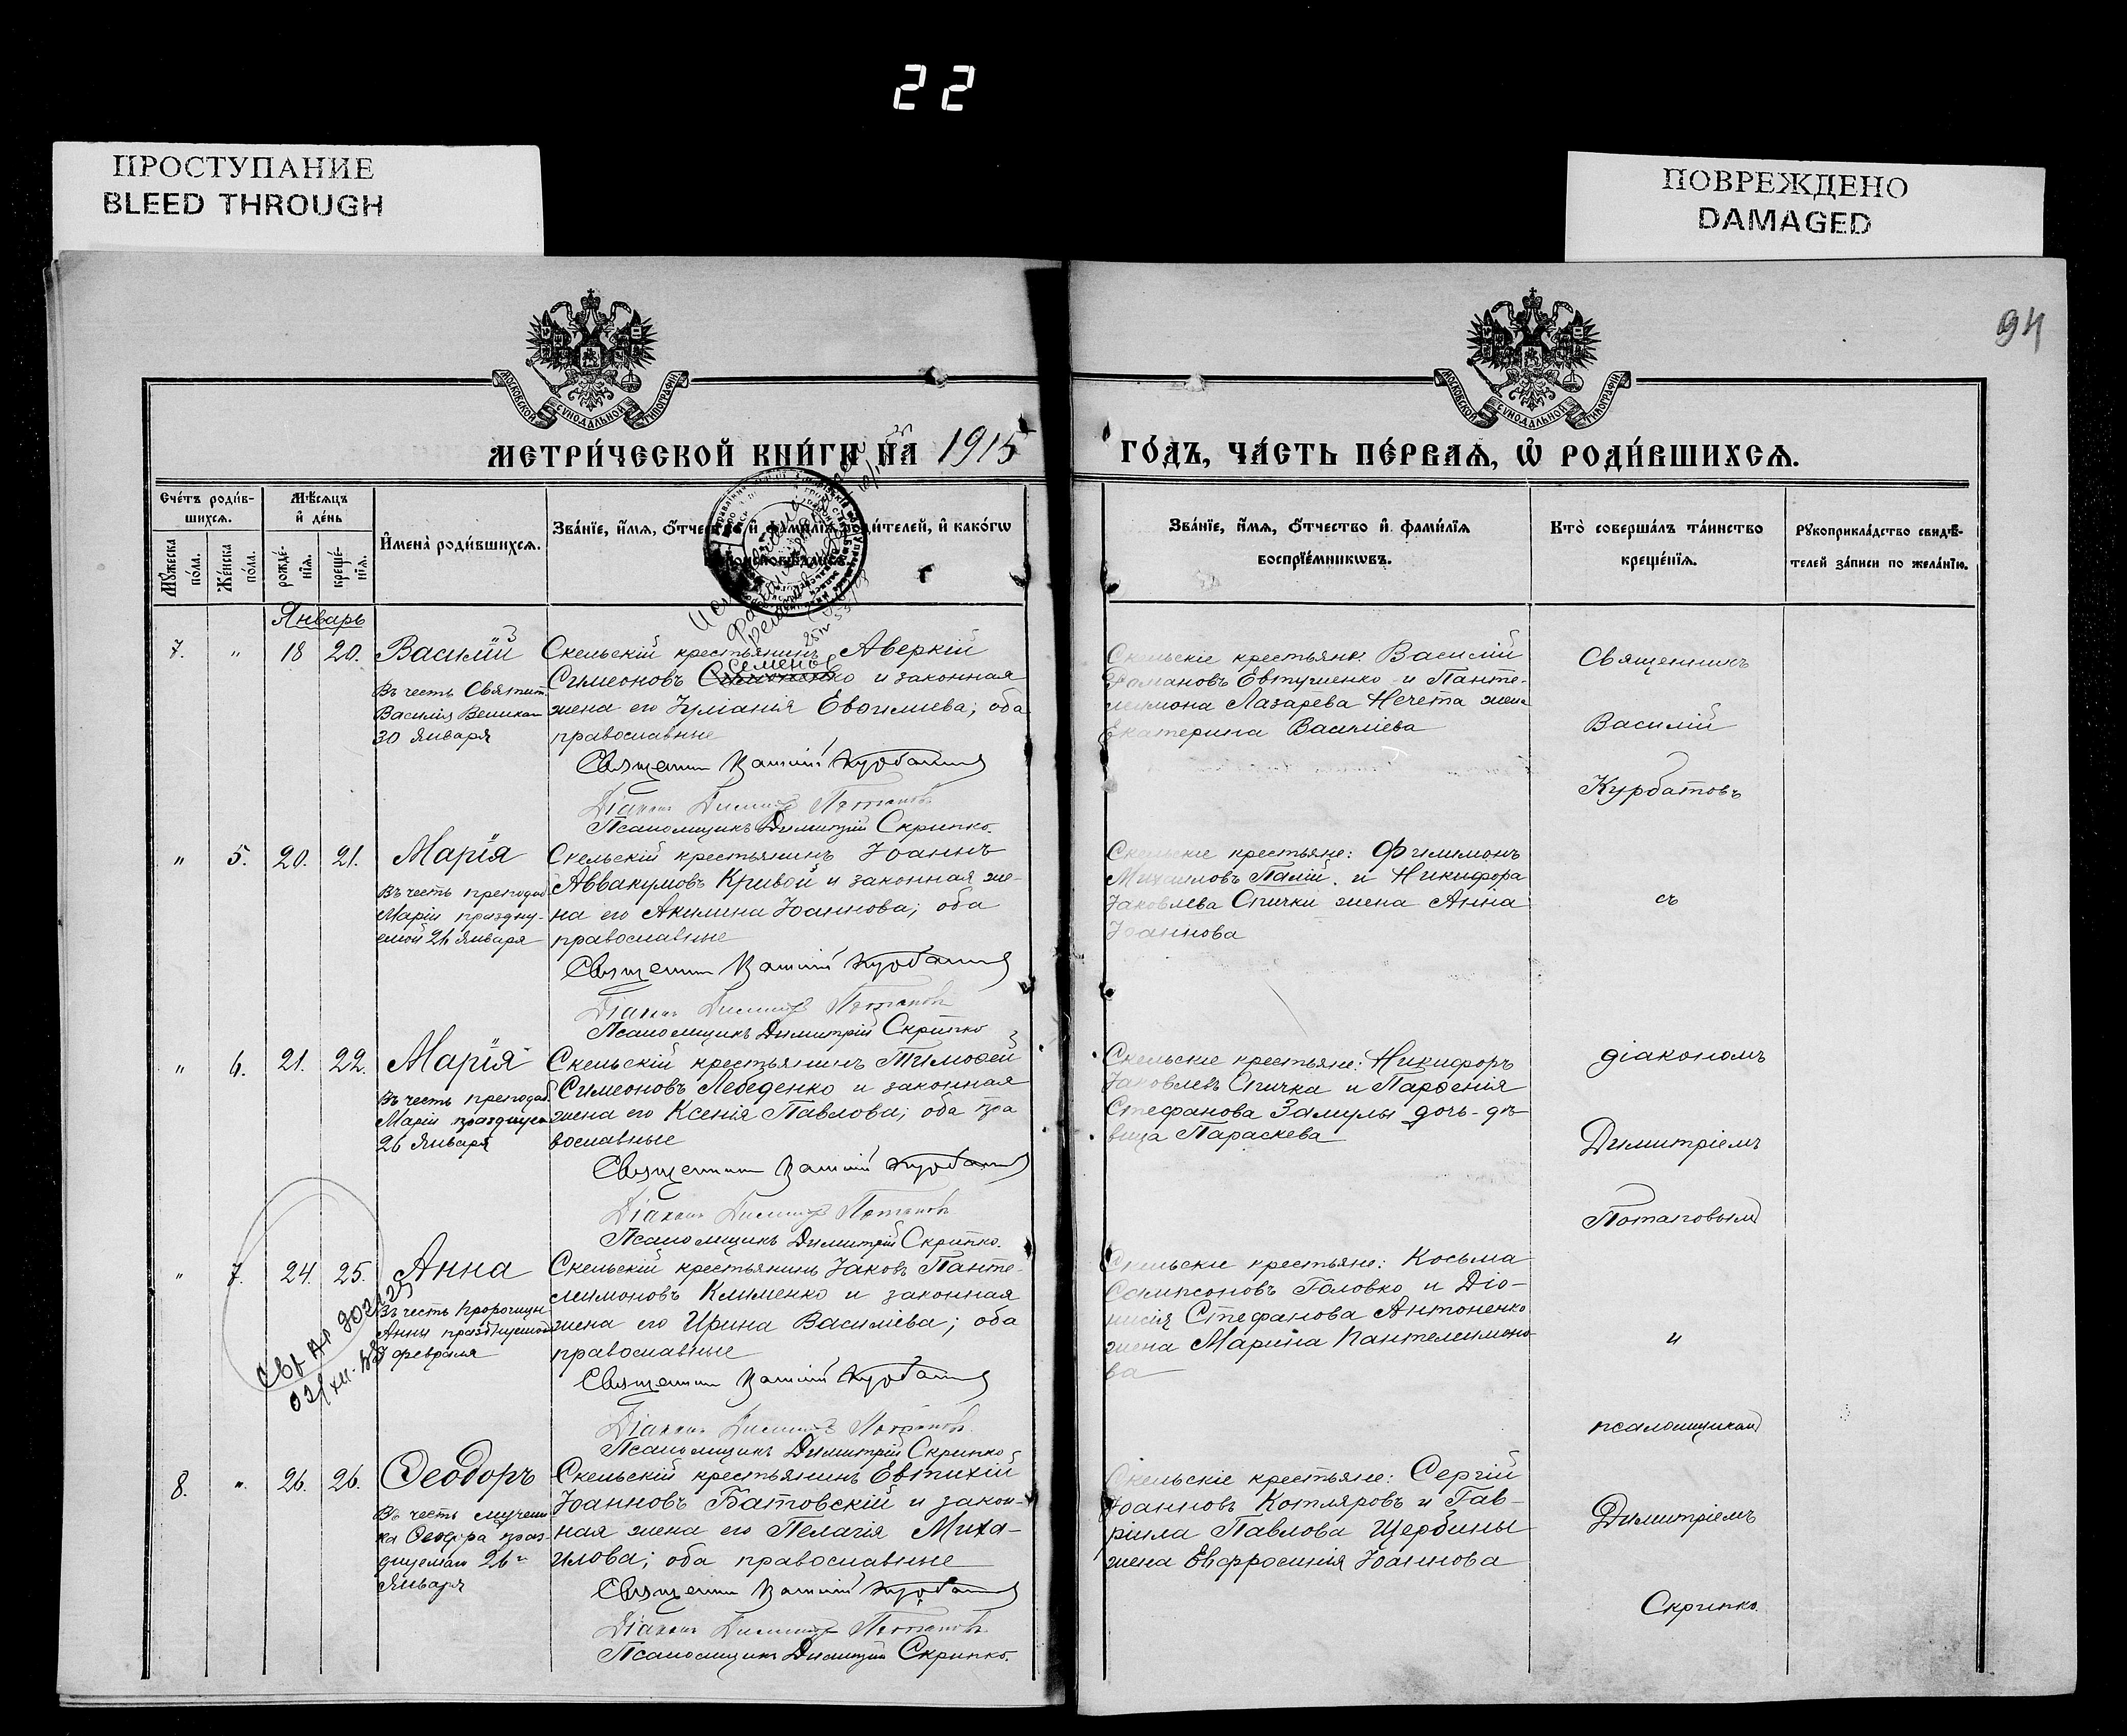 22
ПРОСТУПАНИЕ
BLEED THROUGH
ПОВРЕЖДЕНО
DAMAGED
94
МОСКОВСКОЙ СУНОДАЛЬНОЙ ТИПОГРАФІИ
МОСКОВСКОЙ СУНОДАЛЬНОЙ ТИПОГРАФІИ
МЕТРИ́ЧЕСКОЙ КНИ́ГИ НА 1915
ГО́ДЪ, ЧА́СТЬ ПЕ́РВАѦ, Ѡ҆ РОДИ́ВШИХСѦ.
Сче́тъ роди́в-
шихсѧ.
Мѣ́сѧцъ
и҆ де́нь
Мꙋ́жеска по́ла.
Же́нска по́ла.
рожде́-
нїѧ.
креще́-
нїѧ.
И҆мена̀ роди́вшихсѧ.
Зва́нїе, и҆́мѧ, ѻ҆́тчество и҆ фами́лїѧ роди́телей, и҆ како́гѡ
Зва́нїе, и҆́мѧ, ѻ҆́тчество и҆ фами́лїѧ
воспрїе́мникѡвъ.
Кто̀ соверша́лъ та́инство
креще́нїѧ.
Рꙋкоприкла́дство свидѣ́-
телей за́писи по жела́нїю.
Январь
7. " 18 20. Василій
Въ честь Святит.
Василія Великаго
30 Января
Скельскій крестьянинъ Аверкій
Семено
Симеоновъ и законная
жена его Іуліанія Евѳиміева; оба
православные
Священникъ Василій Курбатовъ
Діаконъ Димитрій Потаповъ
Псаломщикъ Димитрій Скрипко.
Скельскіе крестьяне: Василій
Романовъ Евтушенко и Панте-
леимона Лазарева Нечета жена
Екатерина Василіева
Священникъ
Василій
Курбатовъ
" 5. 20. 21. Марія
Въ честь преподоб.
Маріи праздну-
емой 26 Января
Скельскій крестьянинъ Іоаннъ
Аввакумовъ Кривой и законная же-
на его Акилина Іоаннова; оба
православные
Священникъ Василій Курбатовъ
Діаконъ Димитрій Потаповъ
Псаломщикъ Димитрій Скрипко
Скельскіе крестьяне: Филимонъ
Михаиловъ Палій и Никифора
Іаковлева Спички жена Анна
Іоаннова
съ
" 6. 21. 22. Марія
Въ честь преподоб.
Маріи празднуем
26 Января
Скельскій крестьянинъ Тимоѳей
Симеоновъ Лебеденко и законная
жена его Ксенія Павлова; оба пра
вославные
Священникъ Василій Курбатовъ
Діаконъ Димитрій Потаповъ
Псаломщикъ Димитрій Скрипко.
Скельскіе крестьяне: Никифоръ
Іаковлевъ Спичка и Парѳенія
Стефанова Замулы дочь-дѣ-
вица Параскева
діакономъ
Димитріемъ
Потаповымъ
" 7. 24. 25. Анна
Въ честь Пророчицы
Анны празднуемой
3 февраля
Скельскій крестьянинъ Іаковъ Панте-
леимоновъ Клименко и законная
жена его Ирина Василіева; оба
православные
Священникъ Василій Курбатовъ
Діаконъ Димитрій Потаповъ
Псаломщикъ Димитрій Скрипко
Скельскіе крестьяне: Косьма
Сампсоновъ Головко и Діо-
нисія Стефанова Антоненко
жена Марина Пантелеимоно-
ва
и
псаломщикомъ
8. " 26. 26. Ѳеодоръ
Въ честь мучени
ка Ѳеодора праз-
днуемаго 26 г
Января
Скельскій крестьянинъ Евтихій
Іоанновъ Батовскій и закон-
ная жена его Пелагія Миха-
илова; оба православные
Священникъ Василій Курбатовъ
Діаконъ Димитрій Потаповъ
Псаломщикъ Димитрій Скрипко.
Скельскіе крестьяне: Сергій
Іоанновъ Котляровъ и Гав-
ріила Павлова Щербины
жена Евфросинія Іоаннова
Димитріемъ
Скрипко.